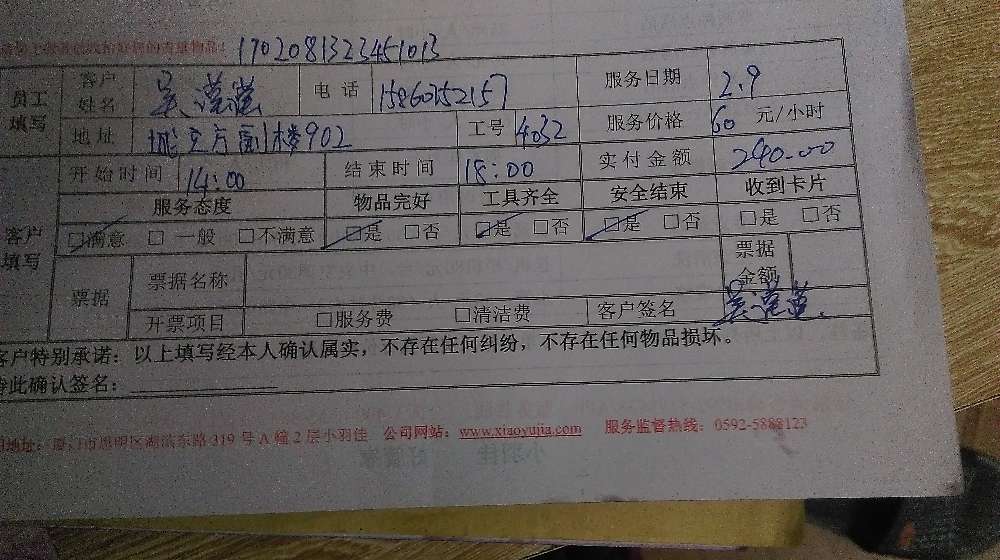 1702081323451013
员工填写 客户姓名 吴滢滢 电话 15860252157 服务日期 2.9
地址 902 工号 4032 服务价格 60 元/小时
开始时间 14:00 结束时间 18:00 实付金额 240.00
客户填写 服务态度 物品完好 工具齐全 安全结束 收到卡片
□满意 □一般 □不满意 □是 □否 □是 □否 □是 □否 □是 □否
票据 票据名称 票据金额
开票项目 □服务费 □清洁费 客户签名 吴滢滢
客户特别承诺：以上填写经本人确认属实，不存在任何纠纷，不存在任何物品损坏。
特此确认签名：
地址：厦门市思明区湖滨东路319号A幢2层小羽佳 公司网站：www.xiaoyujia.com 服务监督热线：0592-5888123